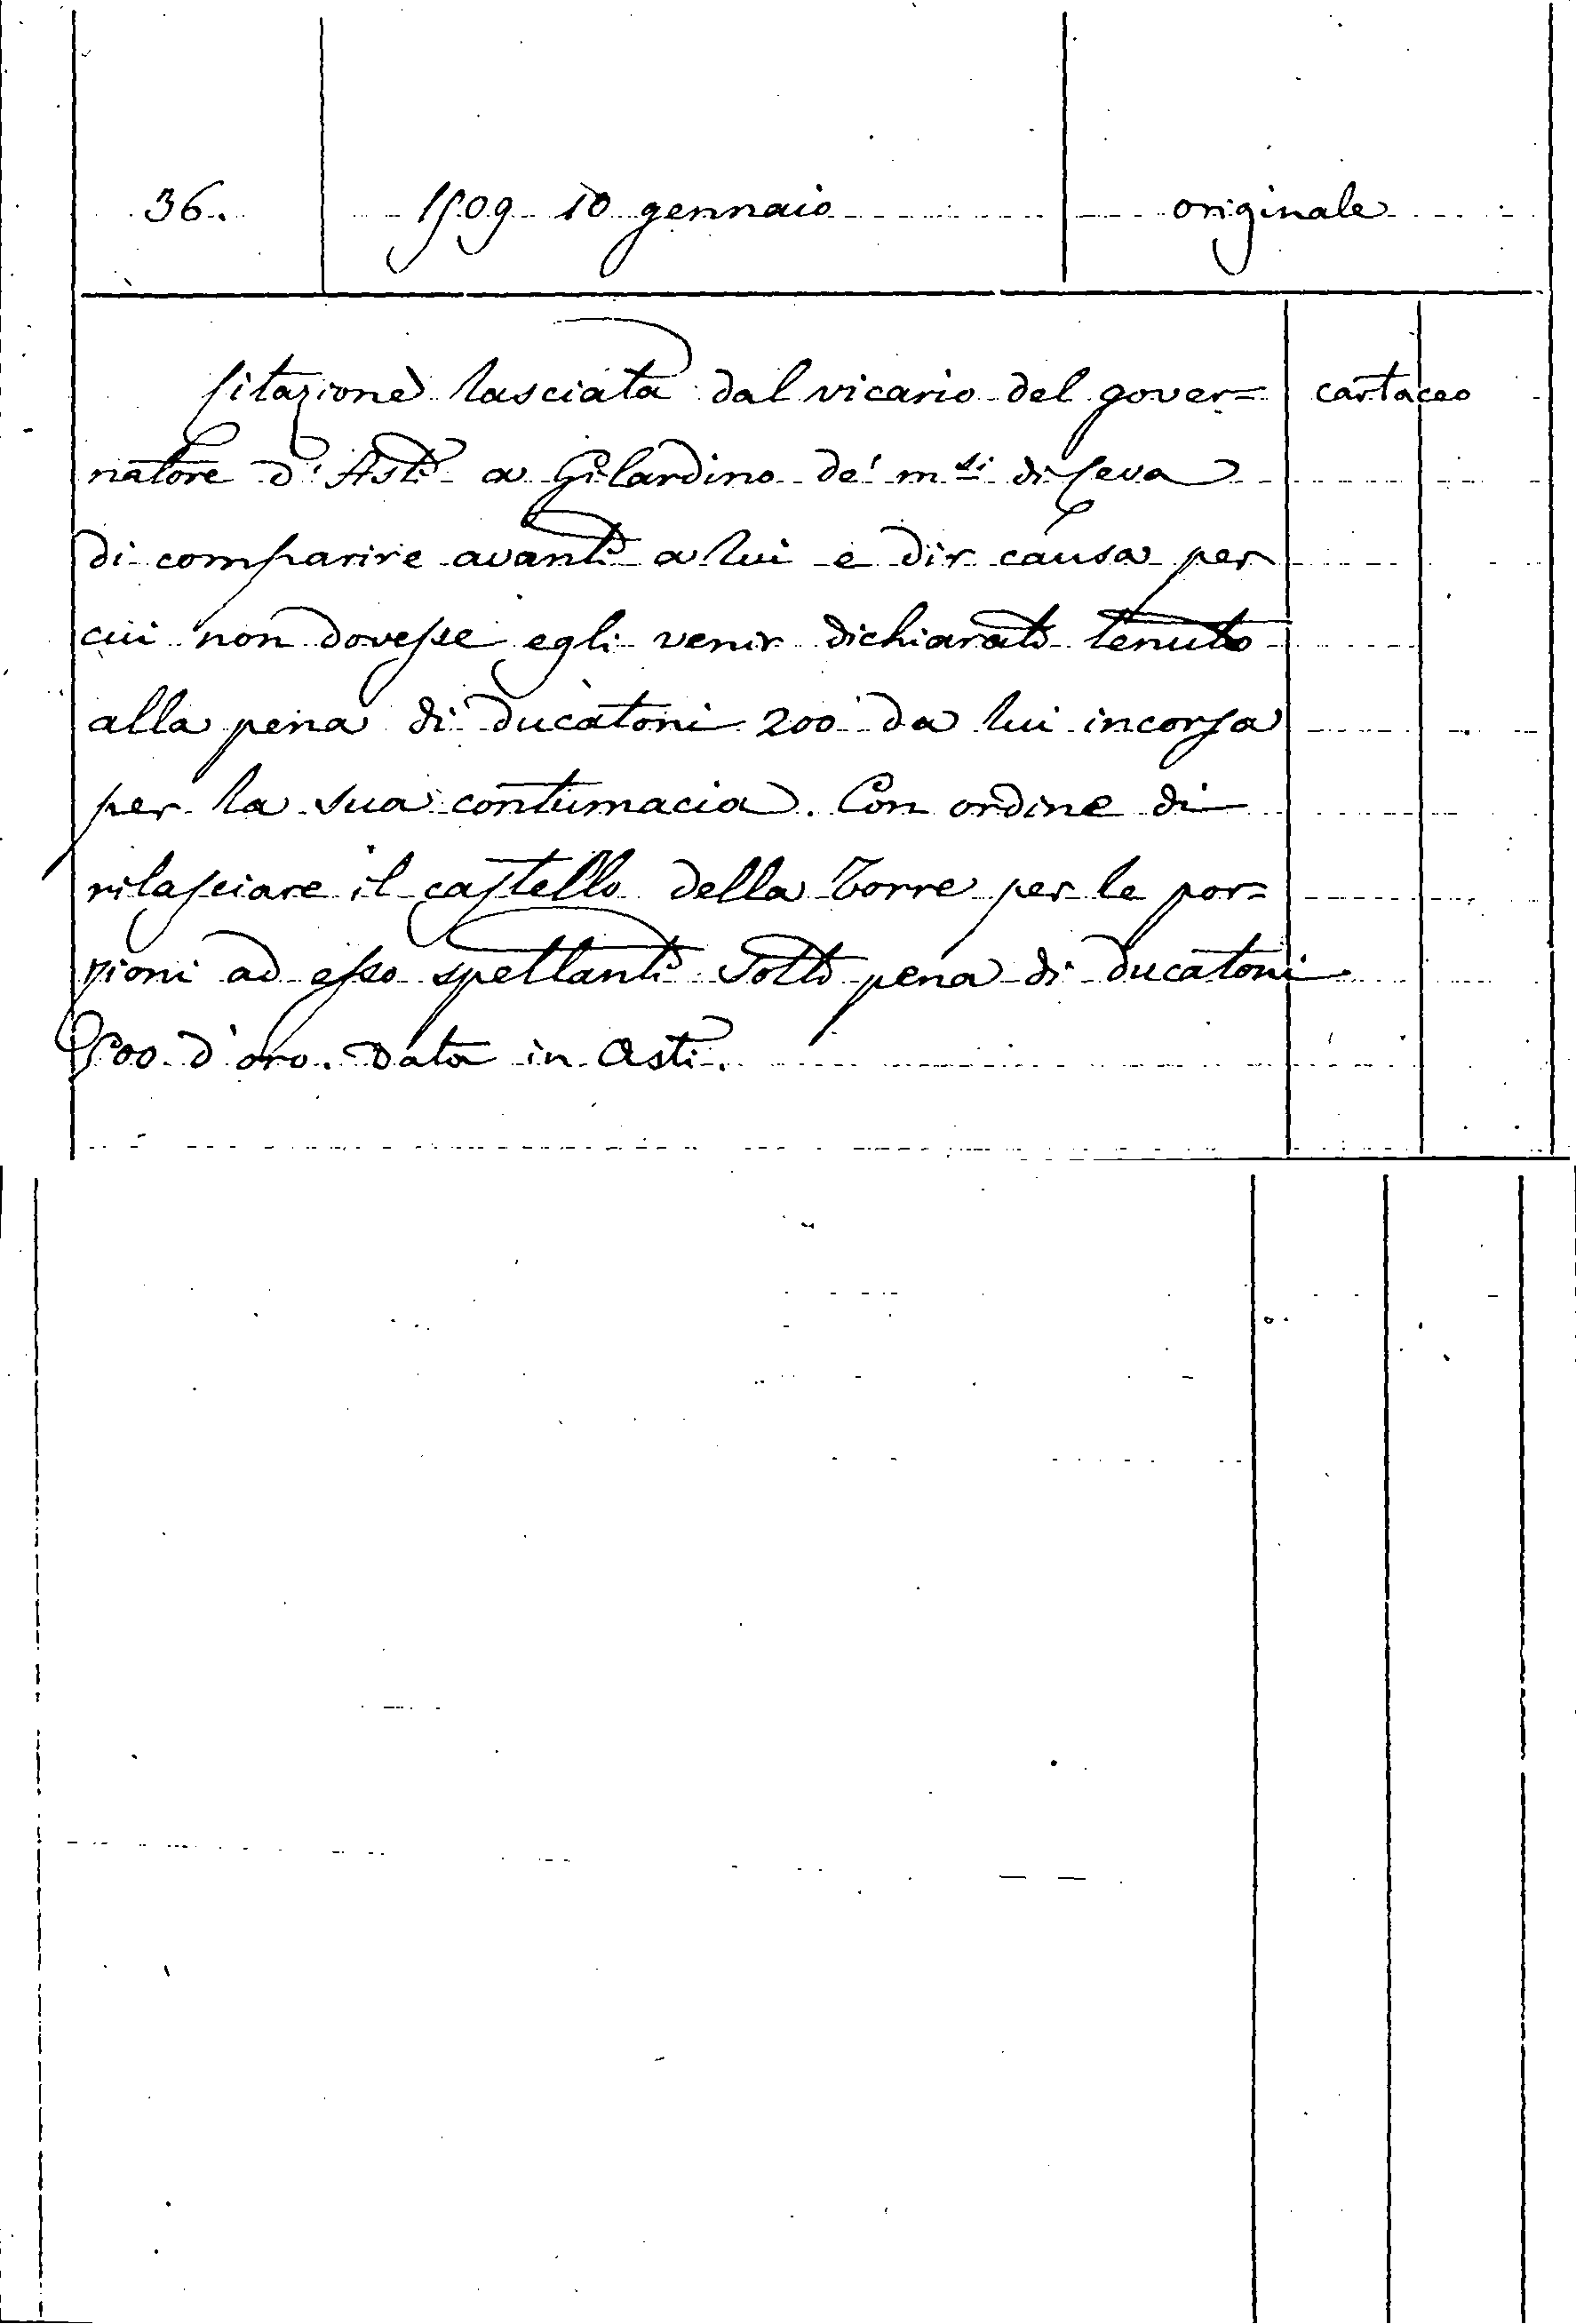 36. 1509 10 gennaio originale
Citazione lasciata dal vicario del gover= cartaceo
natore d'Asti a Gilardino de' m.si di Ceva
di comparire avanti a lui e dir causa per
cui non dovesse egli venir dichiarato tenuto
alla pena di ducatoni 200 da lui incorsa
per la sua contumacia. Con ordine di
rilasciare il castello della Torre per le por=
zioni ad esso spettanti sotto pena di ducatoni
500 d'oro. Data in Asti.